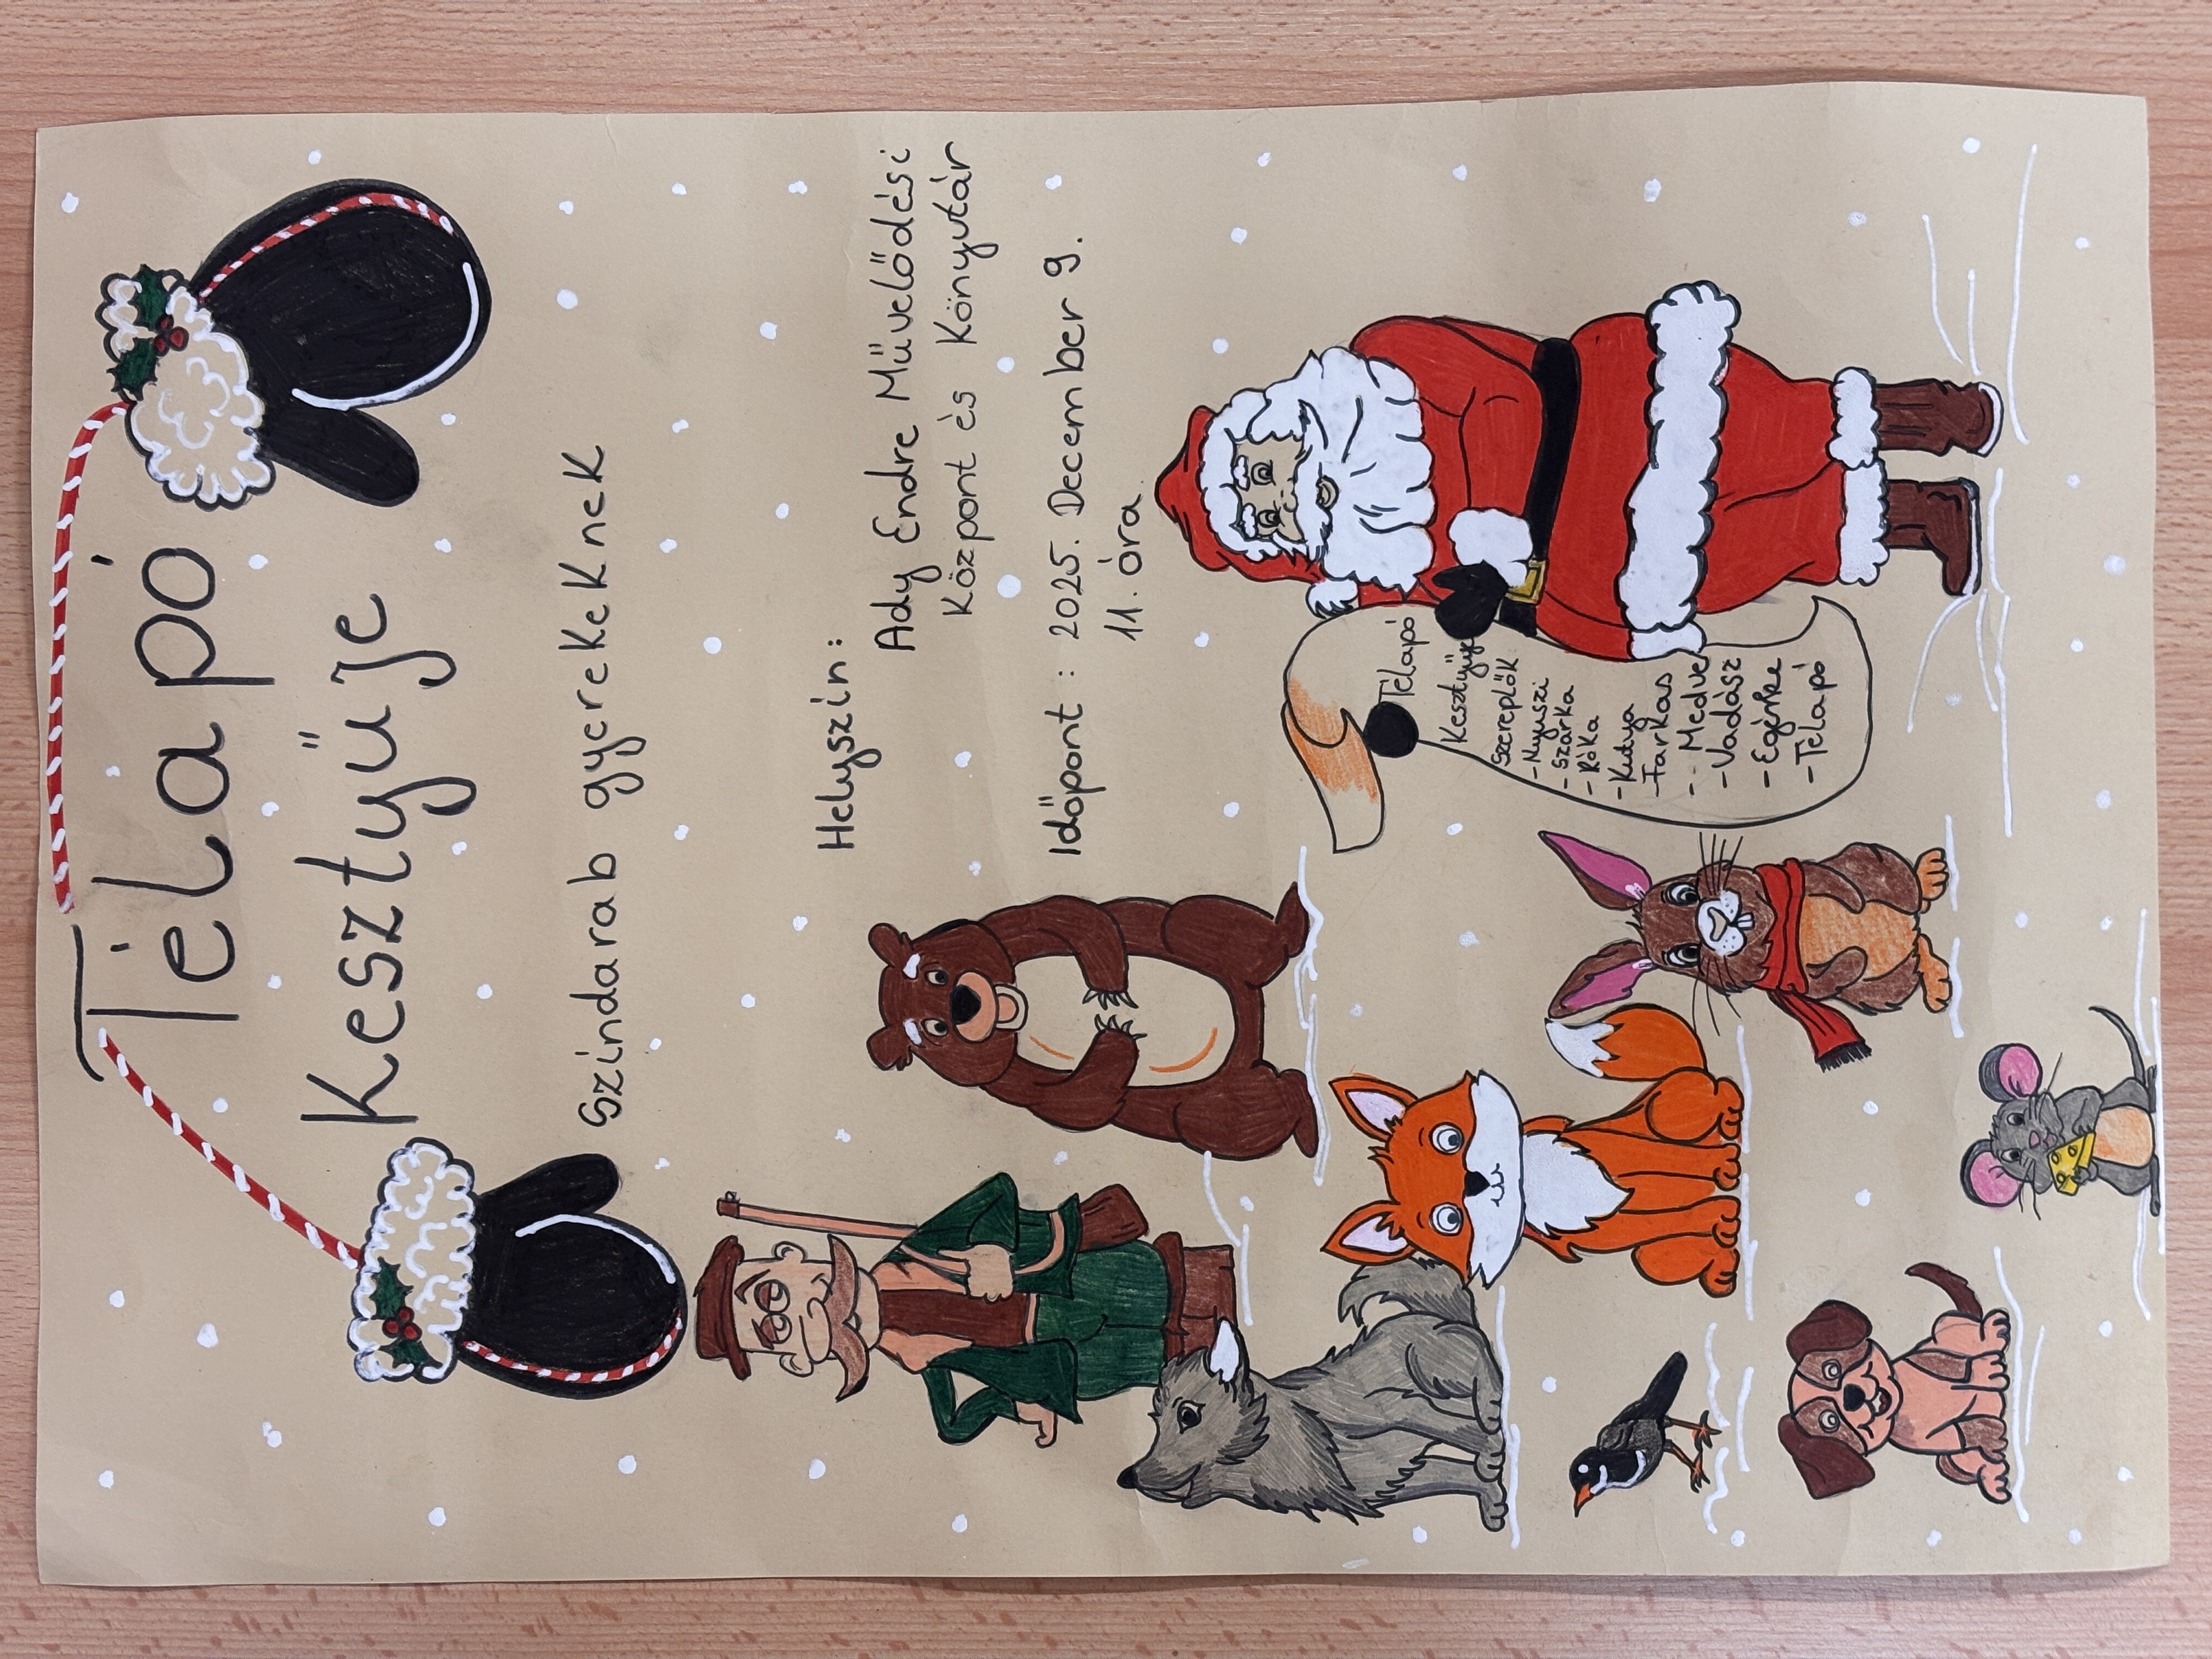 Télapó
Kesztyűje
Színdarab gyerekeknek
Helyszín:
Ady Endre Művelődési
Központ és Könyvtár
Időpont: 2025. December 9.
11. óra.
Télapó
Kesztyűje
Szereplők
-Nyuszi
-Szarka
-Róka
-Kutya
-Farkas
-Medve
-Vadász
-Egérke
-Télapó